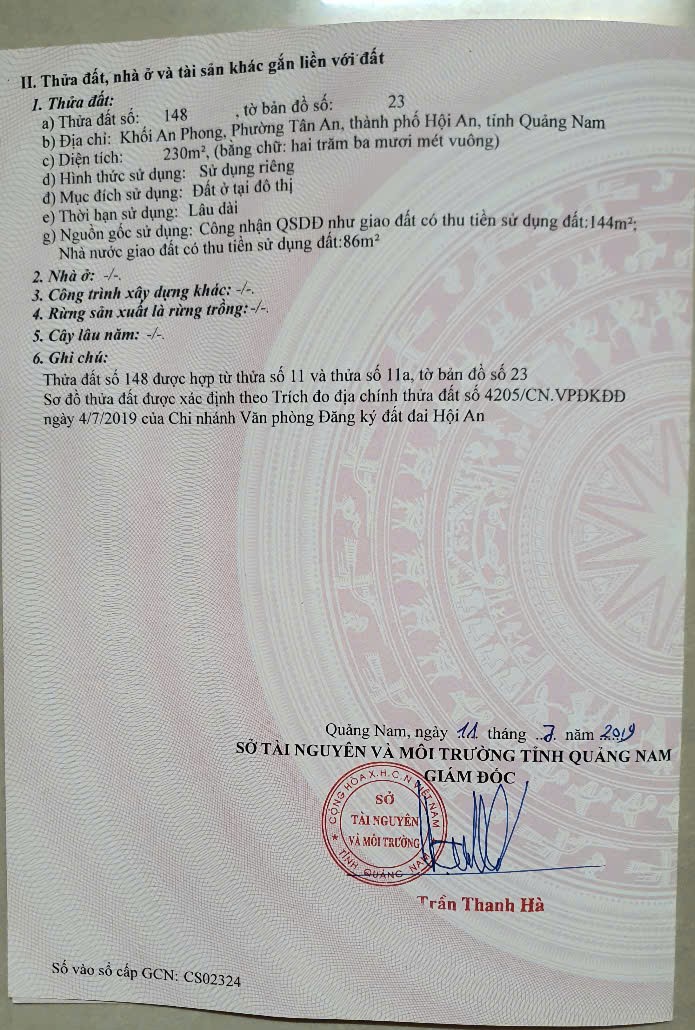 II. Thửa đất, nhà ở và tài sản khác gắn liền với đất
1. Thửa đất:
a) Thửa đất số: 148 , tờ bản đồ số: 23
b) Địa chỉ: Khối An Phong, Phường Tân An, thành phố Hội An, tỉnh Quảng Nam
c) Diện tích: 230m², (bằng chữ: hai trăm ba mươi mét vuông)
d) Hình thức sử dụng: Sử dụng riêng
đ) Mục đích sử dụng: Đất ở tại đô thị
e) Thời hạn sử dụng: Lâu dài
g) Nguồn gốc sử dụng: Công nhận QSDĐ như giao đất có thu tiền sử dụng đất:144m²;
Nhà nước giao đất có thu tiền sử dụng đất:86m²
2. Nhà ở: -/-.
3. Công trình xây dựng khác: -/-.
4. Rừng sản xuất là rừng trồng:-/-.
5. Cây lâu năm: -/-.
6. Ghi chú:
Thửa đất số 148 được hợp từ thửa số 11 và thửa số 11a, tờ bản đồ số 23
Sơ đồ thửa đất được xác định theo Trích đo địa chính thửa đất số 4205/CN.VPĐKĐĐ
ngày 4/7/2019 của Chi nhánh Văn phòng Đăng ký đất đai Hội An
Quảng Nam, ngày 11 tháng ..7. năm 2019
SỞ TÀI NGUYÊN VÀ MÔI TRƯỜNG TỈNH QUẢNG NAM
GIÁM ĐỐC
CỘNG HÒA X.H.C.N VIỆT NAM
SỞ
TÀI NGUYÊN
VÀ MÔI TRƯỜNG
★ TỈNH QUẢNG NAM
Trần Thanh Hà
Số vào sổ cấp GCN: CS02324